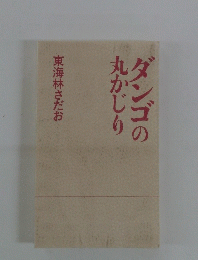 ダンゴの
丸かじり
東海林さだお